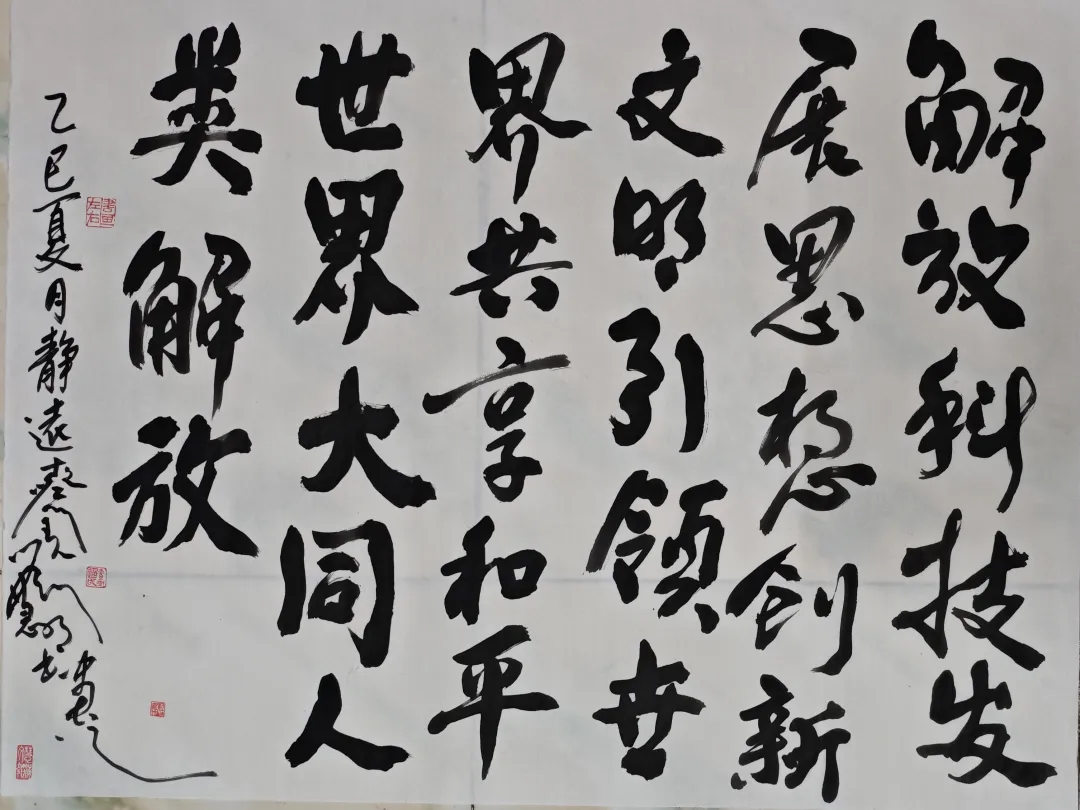 解放科技发
展思想创新
文明引领世
界共享和平
世界大同人
类解放
乙巳夏月静远斋